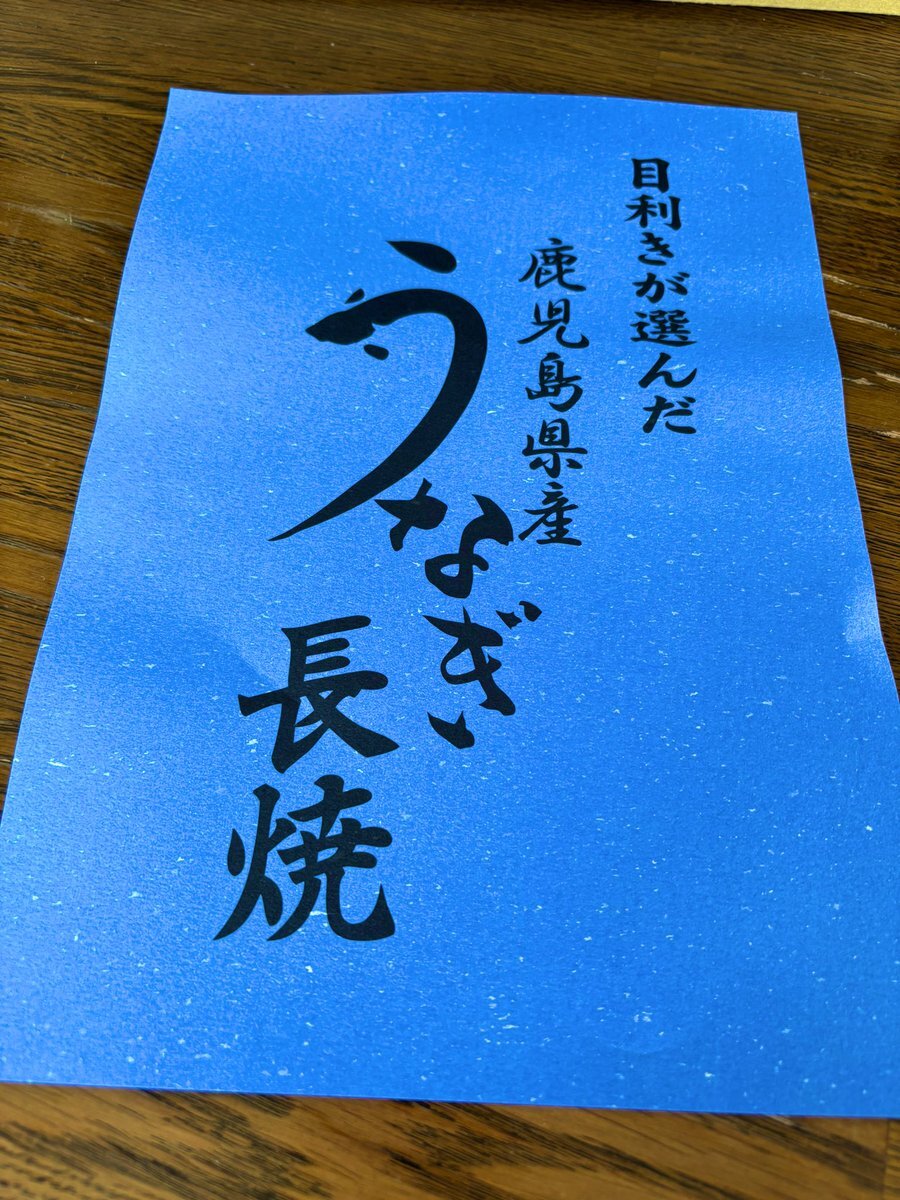 目利きが選んだ
鹿児島県産
うなぎ
長焼